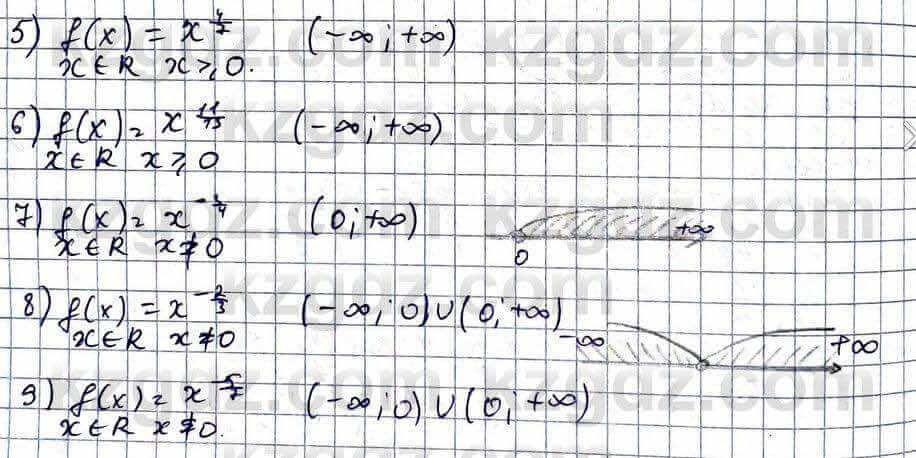 5) f(x) = x^{4/7} (-∞; +∞)
x ∈ R x ≥ 0.
6) f(x) = x^{11/15} (-∞; +∞)
x ∈ R x ≥ 0
7) f(x) = x^{-1/4} (0; +∞)
x ∈ R x ≠ 0
0 +∞
8) f(x) = x^{-2/3} (-∞; 0) ∪ (0; +∞)
x ∈ R x ≠ 0
-∞ +∞
9) f(x) = x^{-5/7} (-∞; 0) ∪ (0; +∞)
x ∈ R x ≠ 0.
kzgdz.com